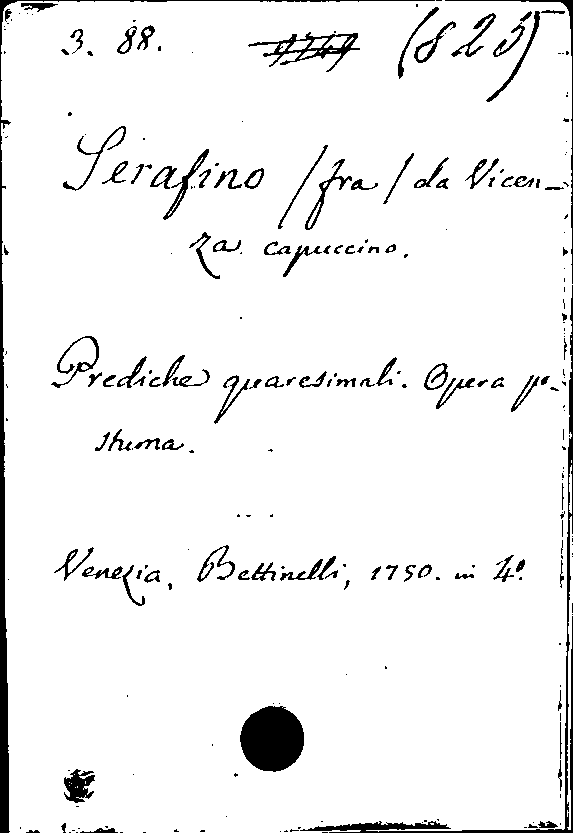 3. 88. (825)
Serafino /fra/ da Vicen-
za capuccino.
Prediche quaresimali. Opera po-
stuma.
Venezia, Bettinelli, 1750. in 4º.